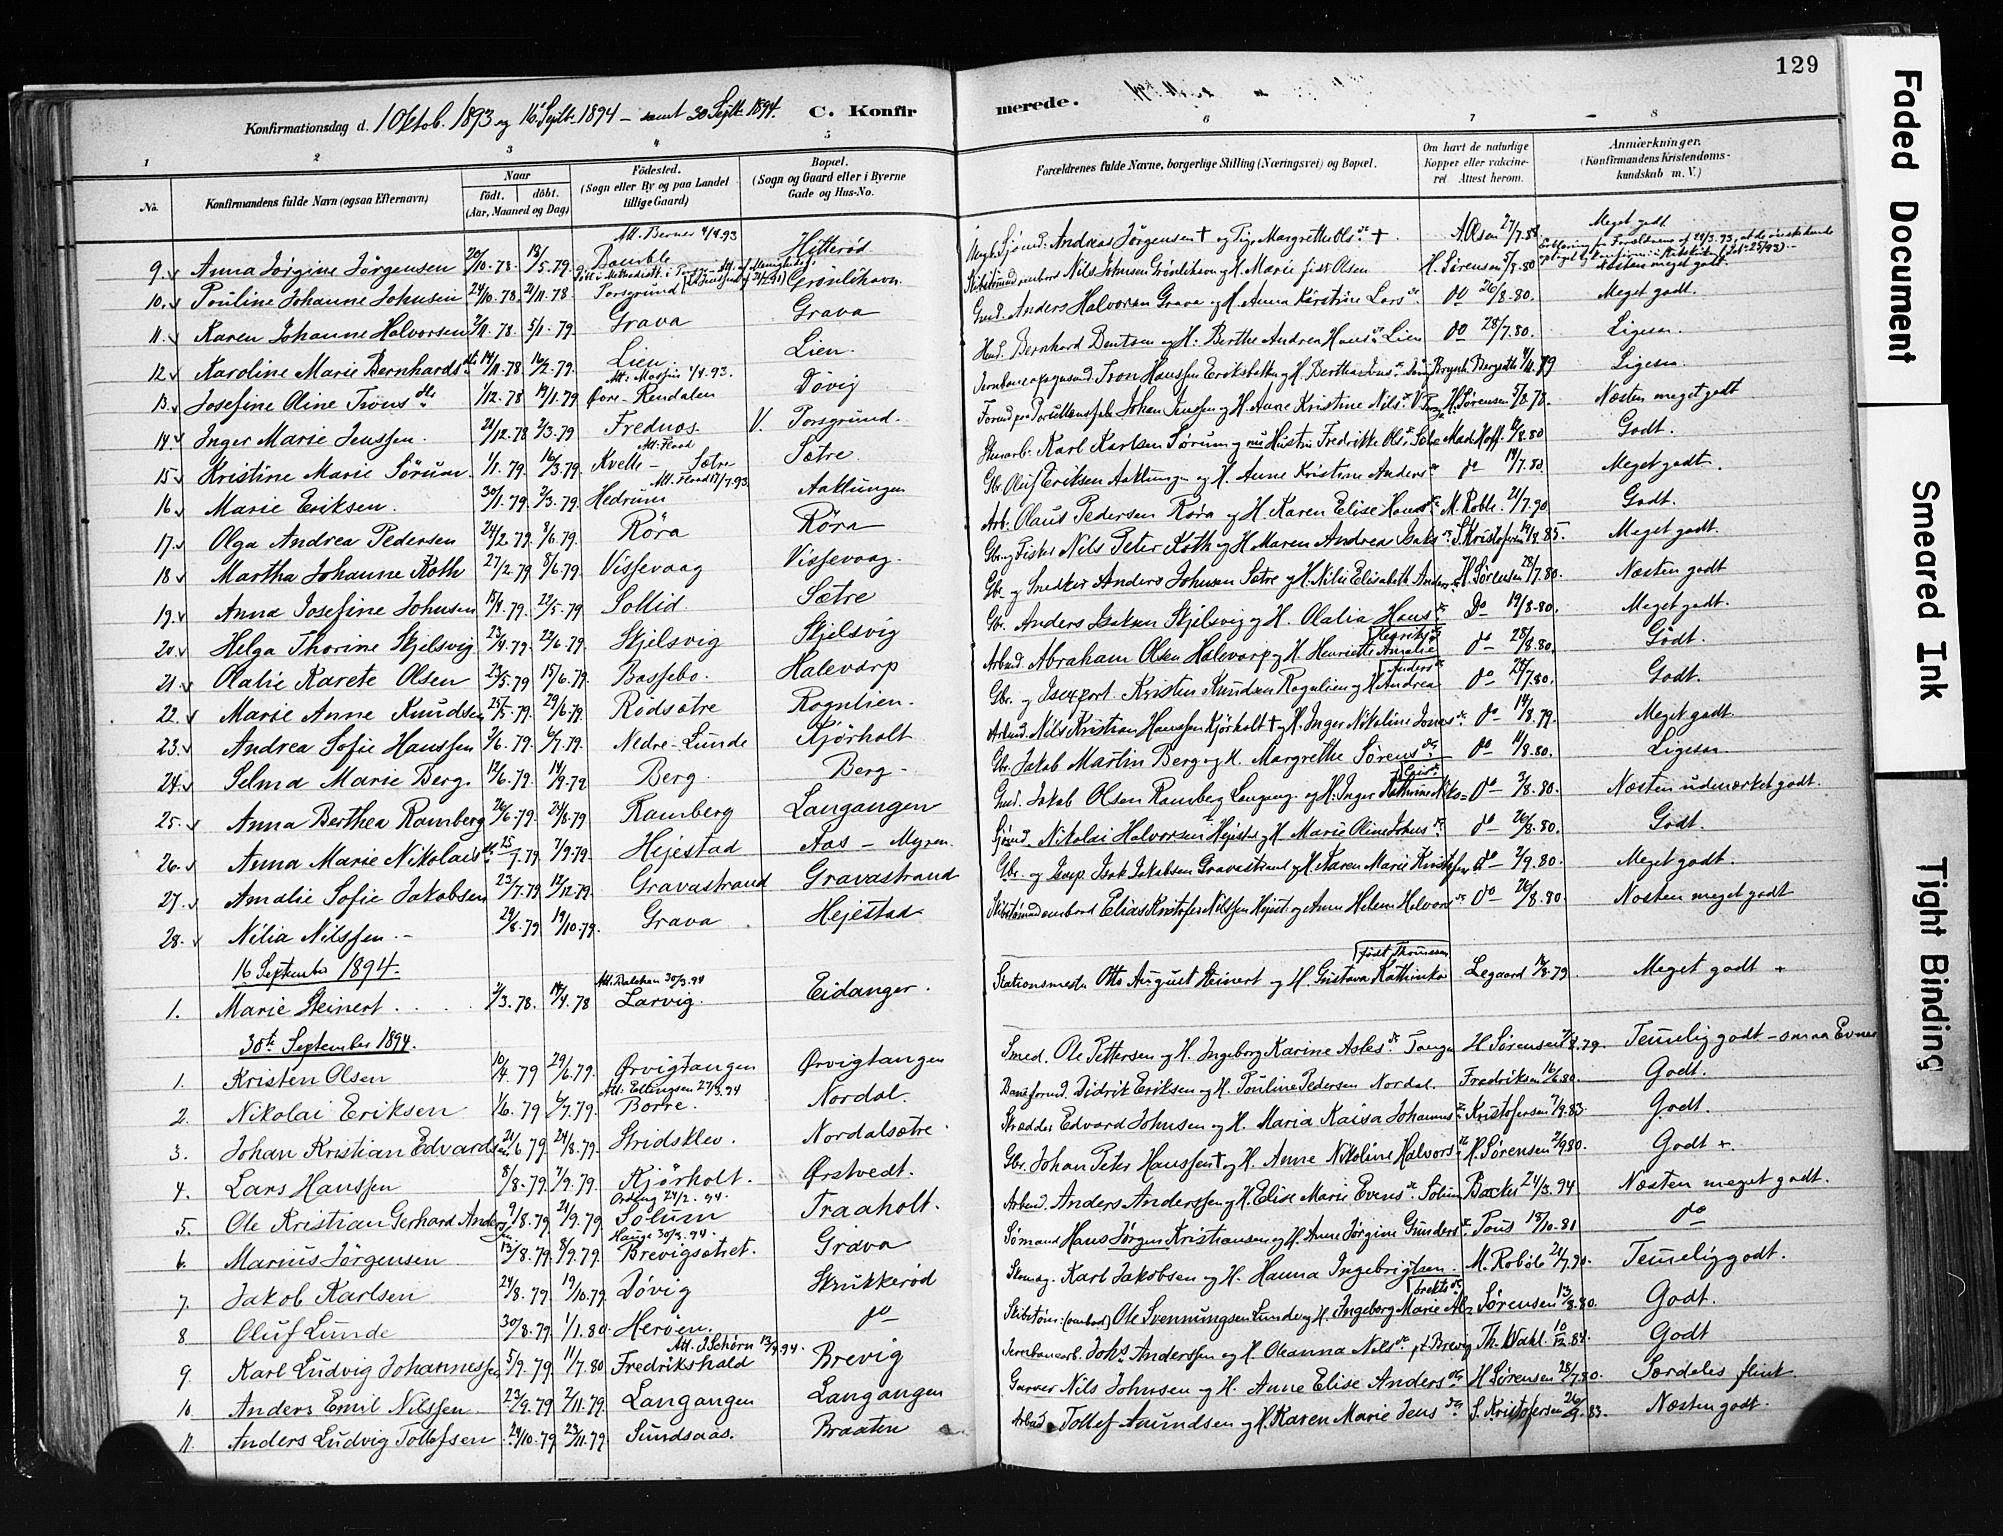 129
Konfirmationsdag d. 1 Oktob. 1893 og 16 Septbr 1894 – samt 30 Septbr 1894.
C. Konfirmerede.
1 2 3 4 5 6 7 8
No. Konfirmandens fulde Navn (ogsaa Efternavn) Naar født. døbt. (Aar, Maaned og Dag) Fødested. (Sogn eller By og paa Landet tillige Gaard) Bopæl. (Sogn og Gaard eller i Byerne Gade og Hus-No.) Forældrenes fulde Navne, borgerlige Stilling (Næringsvei) og Bopæl. Om havt de naturlige Kopper eller vakcineret. Attest herom. Anmærkninger. (Konfirmandens Kristendomskundskab m. V.)
9. Anna Jörgine Jörgensen 20/10.78 18/5.79 Bamble Hitterød Andreas Jörgensen † og Margrethe Ols dr † A. Olsen 27/7. Meget godt
10. Pouline Johanne Johnsen 24/10.78 Porsgrund Grönlihavn Nils Johnsen Grönlihavn og H. Marie født Olsen H. Sørensen 5/8.80 Næsten meget godt.
11. Karen Johanne Halvorsen 2/11.78 5/1.79 Grava Grava Anders Halvorsen Grava og H. Anna Kirstine Lars dr do 26/8.80. Meget godt.
12. Karoline Marie Bernhards dtr 14/11.78 16/2.79 Lien. Lien. Bernhard Bentsen og H. Berthe Andrea Hans dr Lien do 28/7.80. Ligesaa.
13. Josefine Oline Trons dtr 1/12.78 19/1.79 Øvre-Rendalen Døvig Tron Hanssen og H. Bertha Brynh. Bergseth Ligesaa.
14. Inger Marie Jenssen. 2/3.79 Frednæs V. Porsgrund. Johan Jenssen og H. Anne Kristine Nils dr H. Sørensen 5/8.78. Næsten meget godt
15 Kristine Marie Sörum 1/1.79 16/3.79 Kvelle – Sætre Sætre Karl Karlsen Sørum og Hustru Fredrikke Ols dr 6/8.80 Godt.
16. Marie Eriksen. 30/1.79 2/3.79 Hedrum Aaklungen Gbr Oluf Eriksen Aaklungen og H. Anne Kristine Anders dr do 14/7.80. Meget godt.
17. Olga Andrea Pedersen 24/2.79 8/6.79. Röra Röra Arb. Olaus Pedersen Röra og H. Karen Elise Hans dr 21/7.90 Godt.
18 Martha Johanne Roth 27/2.79 8/6.79. Vissevaag Vissevaag. Gbr. og Fisker Nils Peter Roth og H. Maren Andrea Isaks dr S. Kristofersen Meget godt.
19. Anna Josefine Johnsen 22/5.79 Sollid. Sætre Gbr. og Snedker Anders Johnsen Sætre og H. Nilia Elisabeth Anders dr H. Sørensen 28/7.80. Næsten godt
20. Helga Thorine Skjelsvig 23/4.79 22/6.79. Skjelsvig Skjelsvig Gbr. Anders Isaksen Skjelsvig og H. Olalia Hans dr Do 19/8.80. Meget godt.
21. Olalie Karete Olsen 23/5.79 15/6.79. Bassebo. Halevarp Arbmd. Abraham Olsen Halevarp og H. Henriette Amalie Henriks dr do 28/8.80. Godt.
22. Marie Anne Knudsen 25/5.79 29/6.79. Rödsætre Rognlien. Gbr. og Isexport. Kristen Knudsen Rognlien og H. Andrea Anders dr do 28/7.80. Godt.
23. Andrea Sofie Hanssen 2/6.79. 6/7.79. Nedre-Lunde Kjørholt Arbmd. Nils Kristian Hanssen Kjørholt † og H. Inger Nikoline Jonas dr do 14/8.79. Meget godt.
24. Selma Marie Berg. 12/6.79. Berg. Berg. Gbr. Jakob Martin Berg og H. Margrethe Sørens dtr do 11/8.80. Ligesaa
25. Anna Berthea Ramberg 26/6.79. 24/8.79 Ramberg Langangen Gmd. Jakob Olsen Ramberg Langang. og H. Inger Kathrine do 3/8.80. Næsten udmærket godt.
26. Anna Marie Nikolais dtr 15/7.79 7/9.79. Hejestad Aas – Myren. Sjömd. Nikolai Halvorsen Hejesta og H. Marie Oline Johns dr do 26/8.80. Godt.
27. Amalie Sofie Jakobsen 23/7.79 Gravastrand Gravastrand Gbr. Isak Jakobsen Gravastrand og H. Karen Marie Kristofers do 2/9.80. Meget godt.
28. Nilia Nilssen. 29/8.79 19/10.79. Grava Hejestad Elias Kristofer Nilssen Hejest. og Anne Helene Halvors dr do 26/8.80. Næsten meget godt
16 September 1894.
1. Marie Steinert Att. Balchen 30/3.94 2/3.78. Larvig. Eidanger. Stationsmester Otto August Steinert og H. Gustava Kathinka født Thommesen Legaard 12/8.79 Meget godt +
30te September 1894.
1. Kristen Olsen 10/4.79 29/6.79. Ørvigtangen Ørvigtangen Smed. Ole Pettersen og H. Ingeborg Karine Asles dr Tangen H. Sørensen Temmelig godt – smaa Evner
2. Nikolai Eriksen 1/6.79 6/7.79. Att. Ellingsen 27/3.94 Borre. Nordal. Baneformd. Didrik Eriksen og H. Pouline Pedersen Nordal. Fredriksen 16/6.80. Godt.
3. Johan Kristian Edvardsen 21/6.79 24/8.79. Stridsklev. Nordalsætre. Skrædder Edvard Johnsen og H. Maria Kaisa Johannes dr Kristofersen 7/9.83. Godt.
4. Lars Hanssen 8/8.79. 7/9.79. Kjørholt. Ørstvedt. Gbr. Johan Peter Hanssen † og H. Anne Nikoline Halvors dr H. Sørensen 2/9.80 Godt +
5. Ole Kristian Gerhard Anderssen 9/8.79 21/9.79 Solum Traaholt. Arbmd. Anders Anderssen og H. Elise Marie Evens dr Solum Backer 24/3.94 Næsten meget godt.
6. Marius Jørgensen Hauge 30/3.94. 13/8.79. 8/9.79. Brevigsætret. Grava Sømand Hans Jørgen Kristiansen og H. Anne Jørgine Gunders dr 18/10.81 do
7. Jakob Karlsen 24/8.79 19/10.79. Døvig Skrukkerød Stenhug. Karl Jakobsen og H. Hanna Ingebrigtsen. 21/7.90. Temmelig godt.
8 Oluf Lunde 30/8.79. 1/1.80. Herøen. do Ole Svenningsen Lunde og H. Ingeborg Marie Sørensen 13/8.80. Godt.
9. Karl Ludvig Johannessen 5/9.79 11/7.80 Fredrikshald Brevig Jernbanearb. Johs Anderssen og H. Oleanna Nils dr Brevig Th. Wahl. 10/12.84. Godt
10. Anders Emil Nilssen 23/9.79 2/11.79. Langangen Langangen Garver Nils Johnsen og H. Anne Elise Anders dtr H. Sørensen 28/7.80. Særdeles flink.
11. Anders Ludvig Tollefsen 24/10.79 23/11.79. Sundsaas. Braaten Arbmd. Tollef Amundsen og H. Karen Marie Jens dtr S. Kristofersen 26/9.83. Næsten godt.
Faded Document
Smeared Ink
Tight Binding